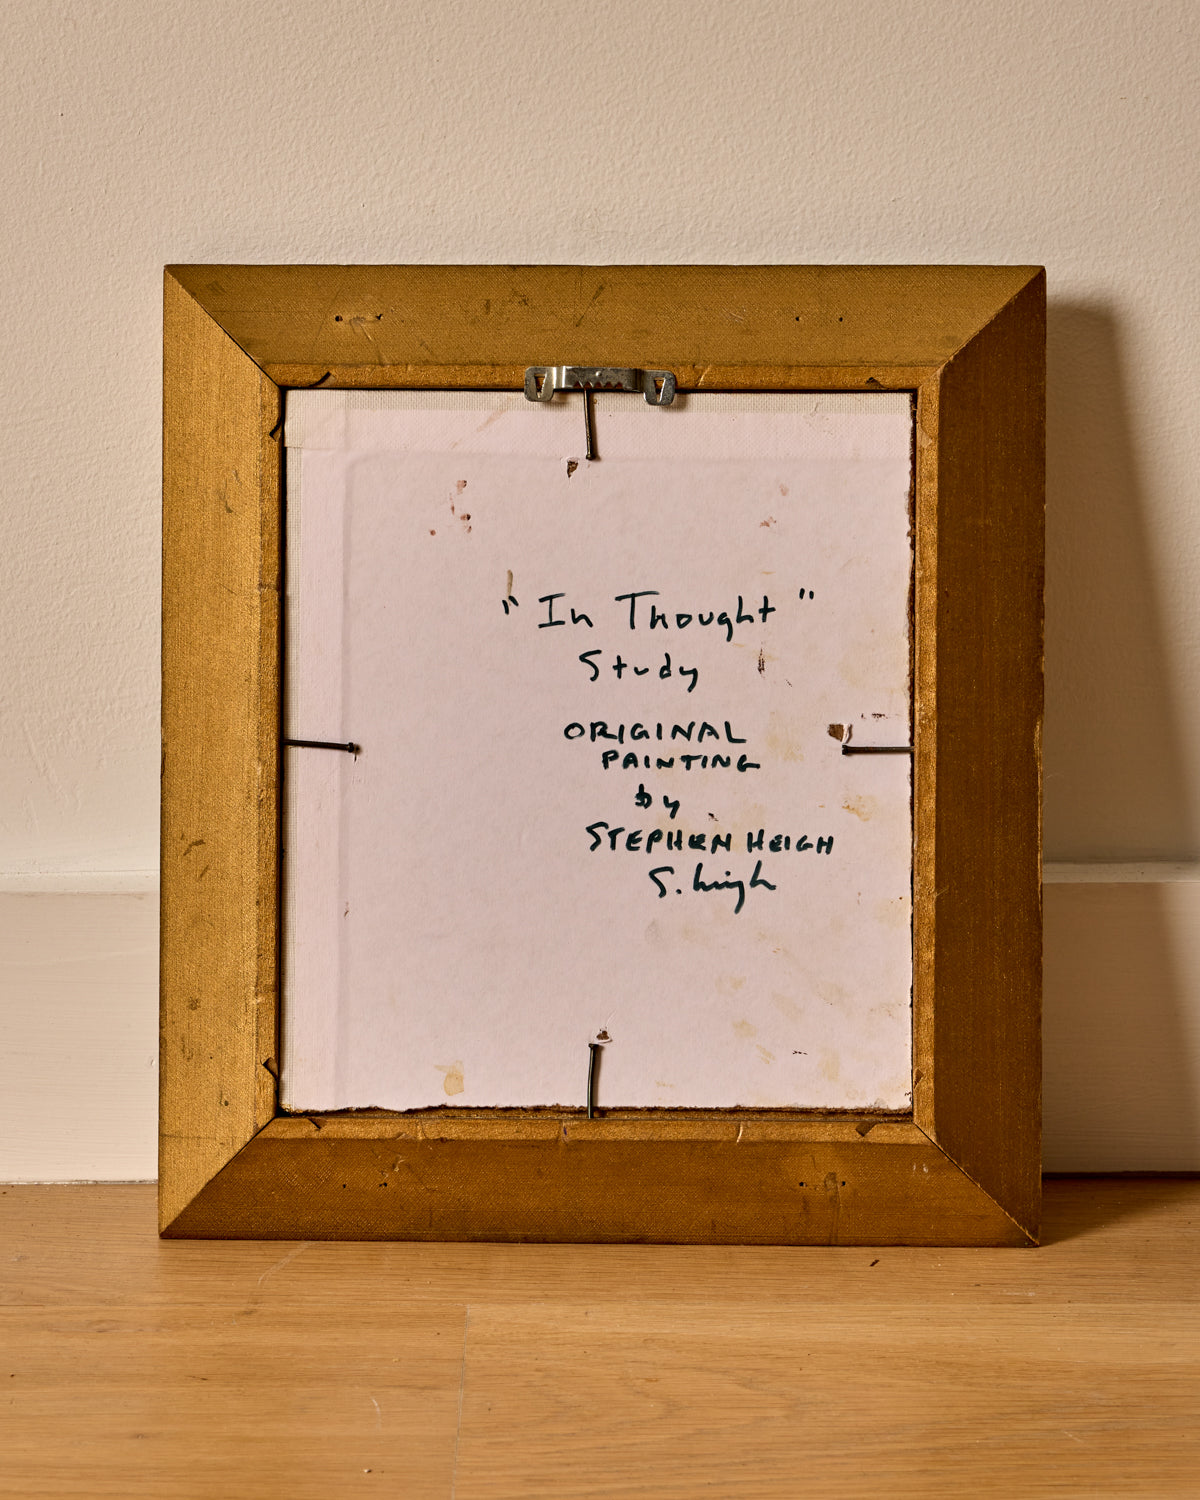 "In Thought"
Study
ORIGINAL
PAINTING
by
STEPHEN HEIGH
S. Heigh